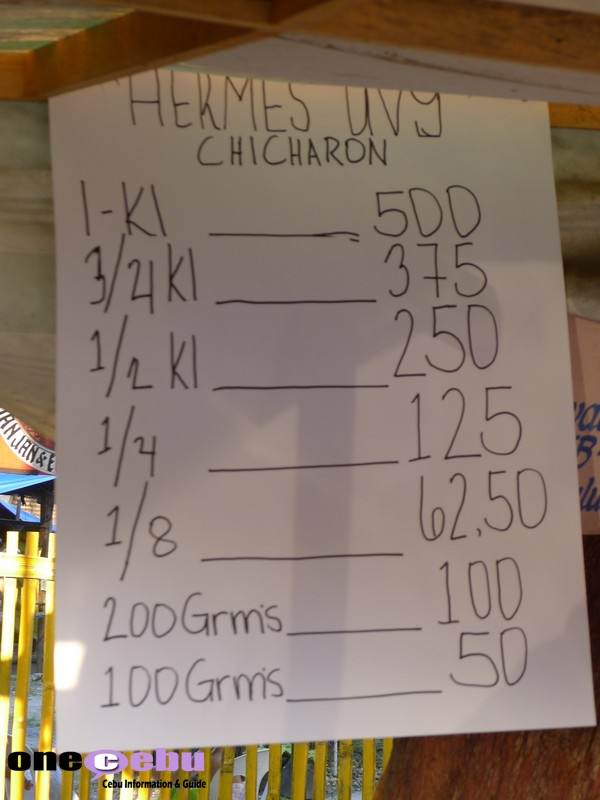 HERMES UVY
CHICHARON
1-Kl ___ 500
3/4 Kl ___ 375
1/2 Kl ___ 250
1/4 ___ 125
1/8 ___ 62.50
200 Grm's ___ 100
100 Grm's ___ 50
onecebu
Cebu Information & Guide